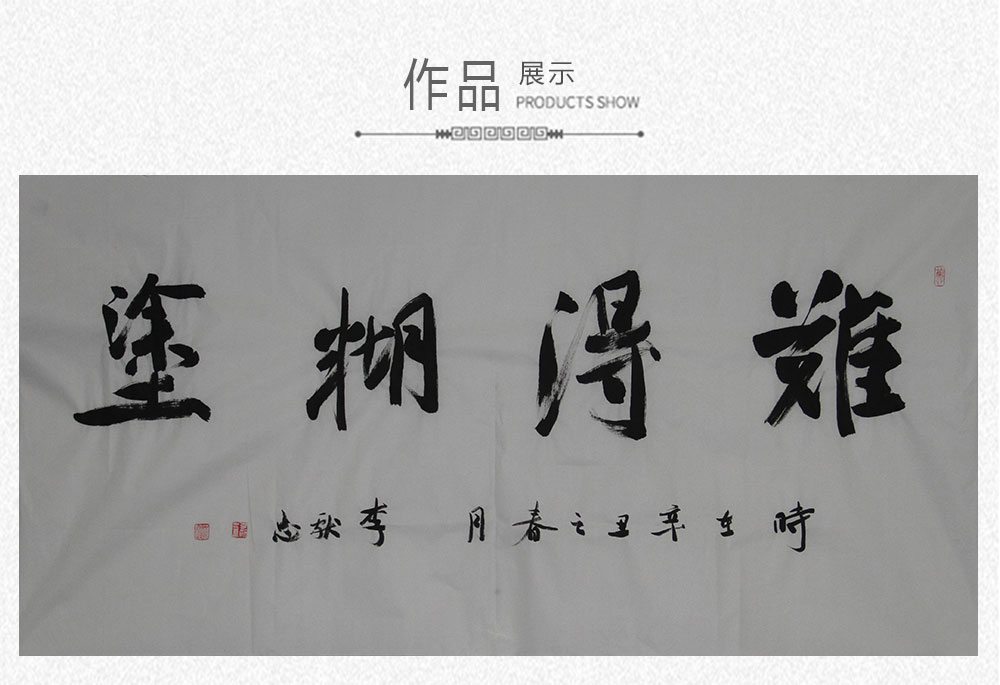 作品 展示
PRODUCTS SHOW
難得糊塗
時在辛丑之春月 李猷志